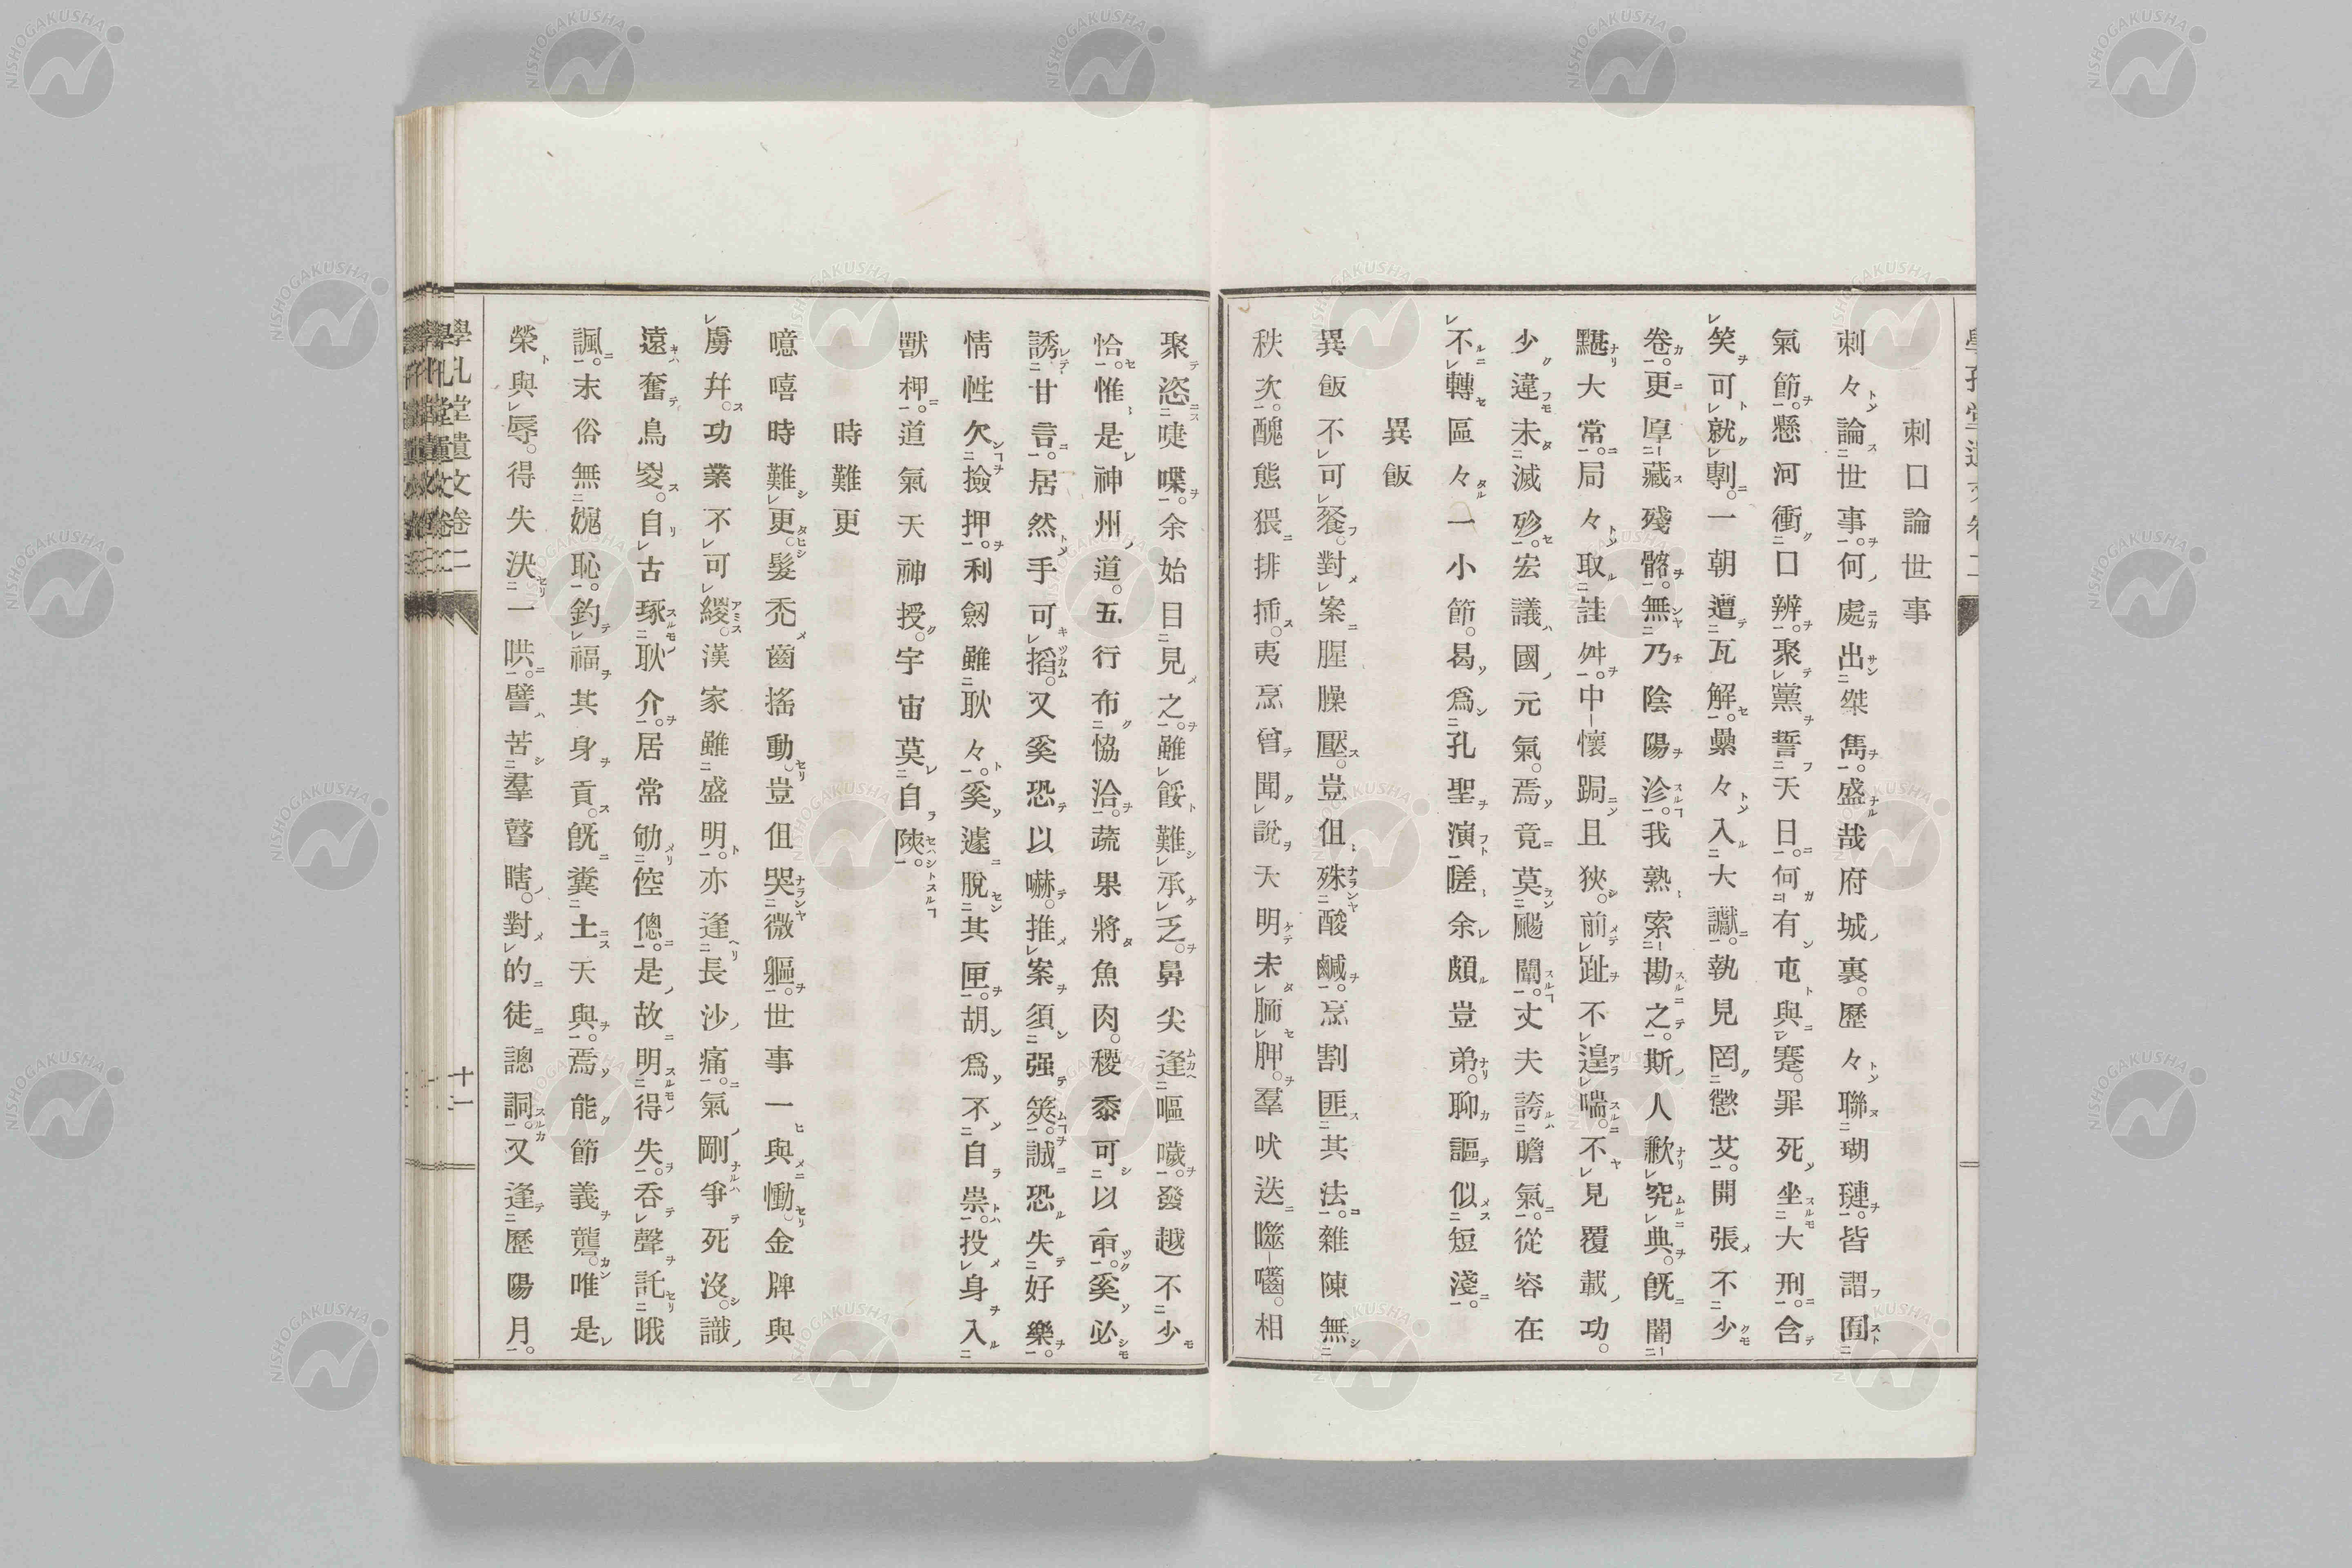 刺口論世事
刺々論世事。何處出桀雋。盛哉府城裏。歷々聯瑚璉。皆謂囿
氣節。懸河衝口辨。聚黨誓天日。何有屯與蹇。罪死坐大刑。含
笑可就剸。一朝遭瓦解。纍々入大讞。執見罔懲艾。開張不少
卷。更厚藏殘骼。無乃陰陽沴。我熟索勘之。斯人歉究典。旣闇
黮大常。局々取詿舛。中懷跼且狹。前趾不遑喘。不見覆載功。
少違未滅殄。宏議國元氣。焉竟莫颺闡。丈夫誇膽氣。從容在
不轉區々一小節。曷爲孔聖演。嗟余頗豈弟。聊謳似短淺。
異飯
異飯不可餐。對案腥臊壓。豈但殊酸鹹。烹割匪其法。雜陳無
秩次。醜態猥排揷。夷烹曾聞說。天明未胹胛。羣吠迭噬嚙。相
聚恣啑喋。余始目見之。雖餒難承乏。鼻尖逢嘔噦。發越不少
恰。惟是神州道。五行布恊洽。蔬果將魚肉。稷黍可以甫。奚必
誘甘言。居然手可搯。又奚恐以嚇。推案須强筴。誠恐失好樂。
情性欠撿押。利劒雖耿々。奚遽脫其匣。胡爲不自祟。投身入
獸柙。道氣天神授。宇宙莫自陿。
時難更
噫嘻時難更。髮禿齒搖動。豈但哭微軀。世事一與慟。金牌與
虜幷。功業不可緩。漢家雖盛明。亦逢長沙痛。氣剛爭死沒。識
遠奮鳥翜。自古琢耿介。居常劬倥傯。是故明得失。呑聲託哦
諷。末俗無媿恥。釣福其身貢。旣糞土天與。焉能節義聾。唯是
榮與辱。得失決一哄。譬苦羣瞽瞎。對的徒謥詷。又逢歷陽月。
學孔堂遺文卷二
十一